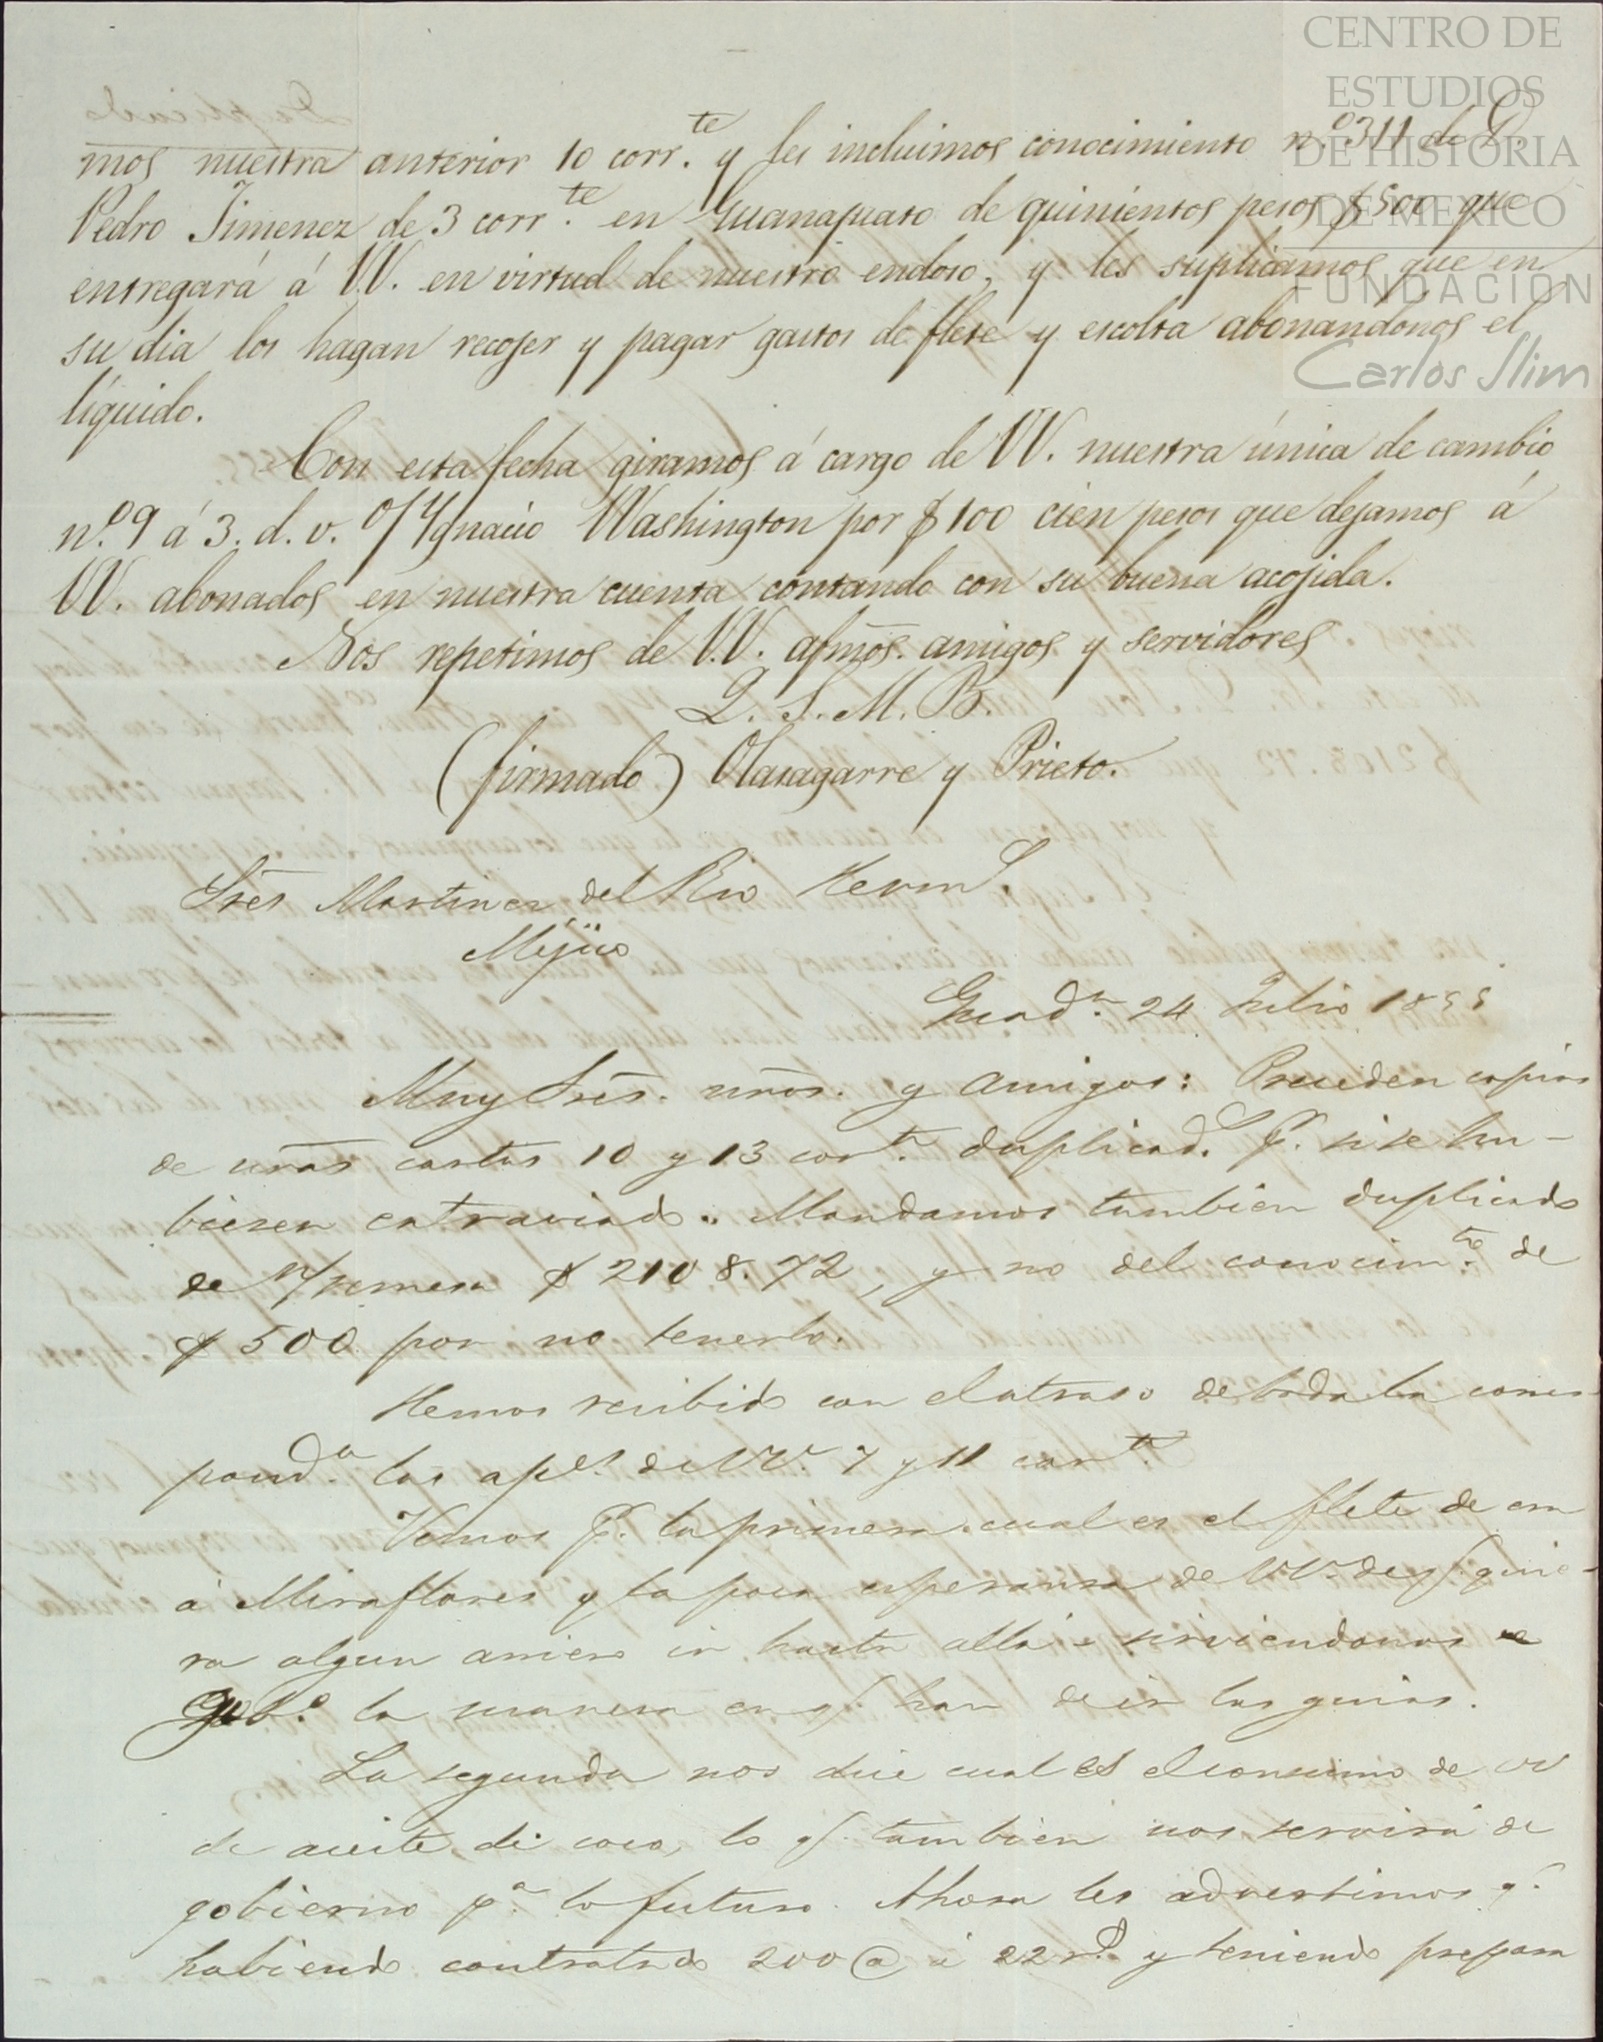 CENTRO DE
ESTUDIOS
DE HISTORIA
DE MÉXICO
FUNDACIÓN
Carlos Slim
mos nuestra anterior 10 corr.te y les incluimos conocimiento n.o 311 de D.
Pedro Jimenez de 3 corr.te en Guanajuato de quinientos pesos $ 500 que
entregará á VV. en virtud de nuestro endoso, y les suplicamos que en
su dia los hagan recojer y pagar gastos de flete y escolta abonandonos el
líquido.
Con esta fecha giramos á cargo de VV. nuestra única de cambio
n.o 9 á 3. d. v. o/ Ygnacio Washington por $ 100 cien pesos que dejamos á
VV. abonados en nuestra cuenta contando con su buena acojida.
Nos repetimos de VV. afmõs. amigos y servidores
Q. S. M. B.
(firmado) Olasagarre y Prieto.
Srẽs Martinez del Rio Herm.s
Mejico
Guad.a 24 Julio 1855
Muy Srẽs. nr̃os. y amigos: Preceden copias
de nr̃as cartas 10 y 13 corr.te duplicad.s p. si se hu-
biesen extraviado. Mandamos tambien duplicado
de n/ remesa $ 2108.72, y no del conocim.to de
$ 500 por no tenerlo.
Hemos recibido con el atraso de toda la corres-
pond.a las ap.s de VV. 7 y 11 corr.te
Vemos p. la primera cual es el flete de esa
á Miraflores y la poca esperanza de VV. de q. quie-
ra algun arriero ir hasta allá sirviendonos de
gob.o la manera en q. han de ir las guias.
La segunda nos dice cual es el consumo de VV
de aceite de coco, lo q. tambien nos servirá de
gobierno p.a lo futuro. Ahora les advertimos q.
habiendo contratado 200 @ á 22 r.s y teniendo prepara